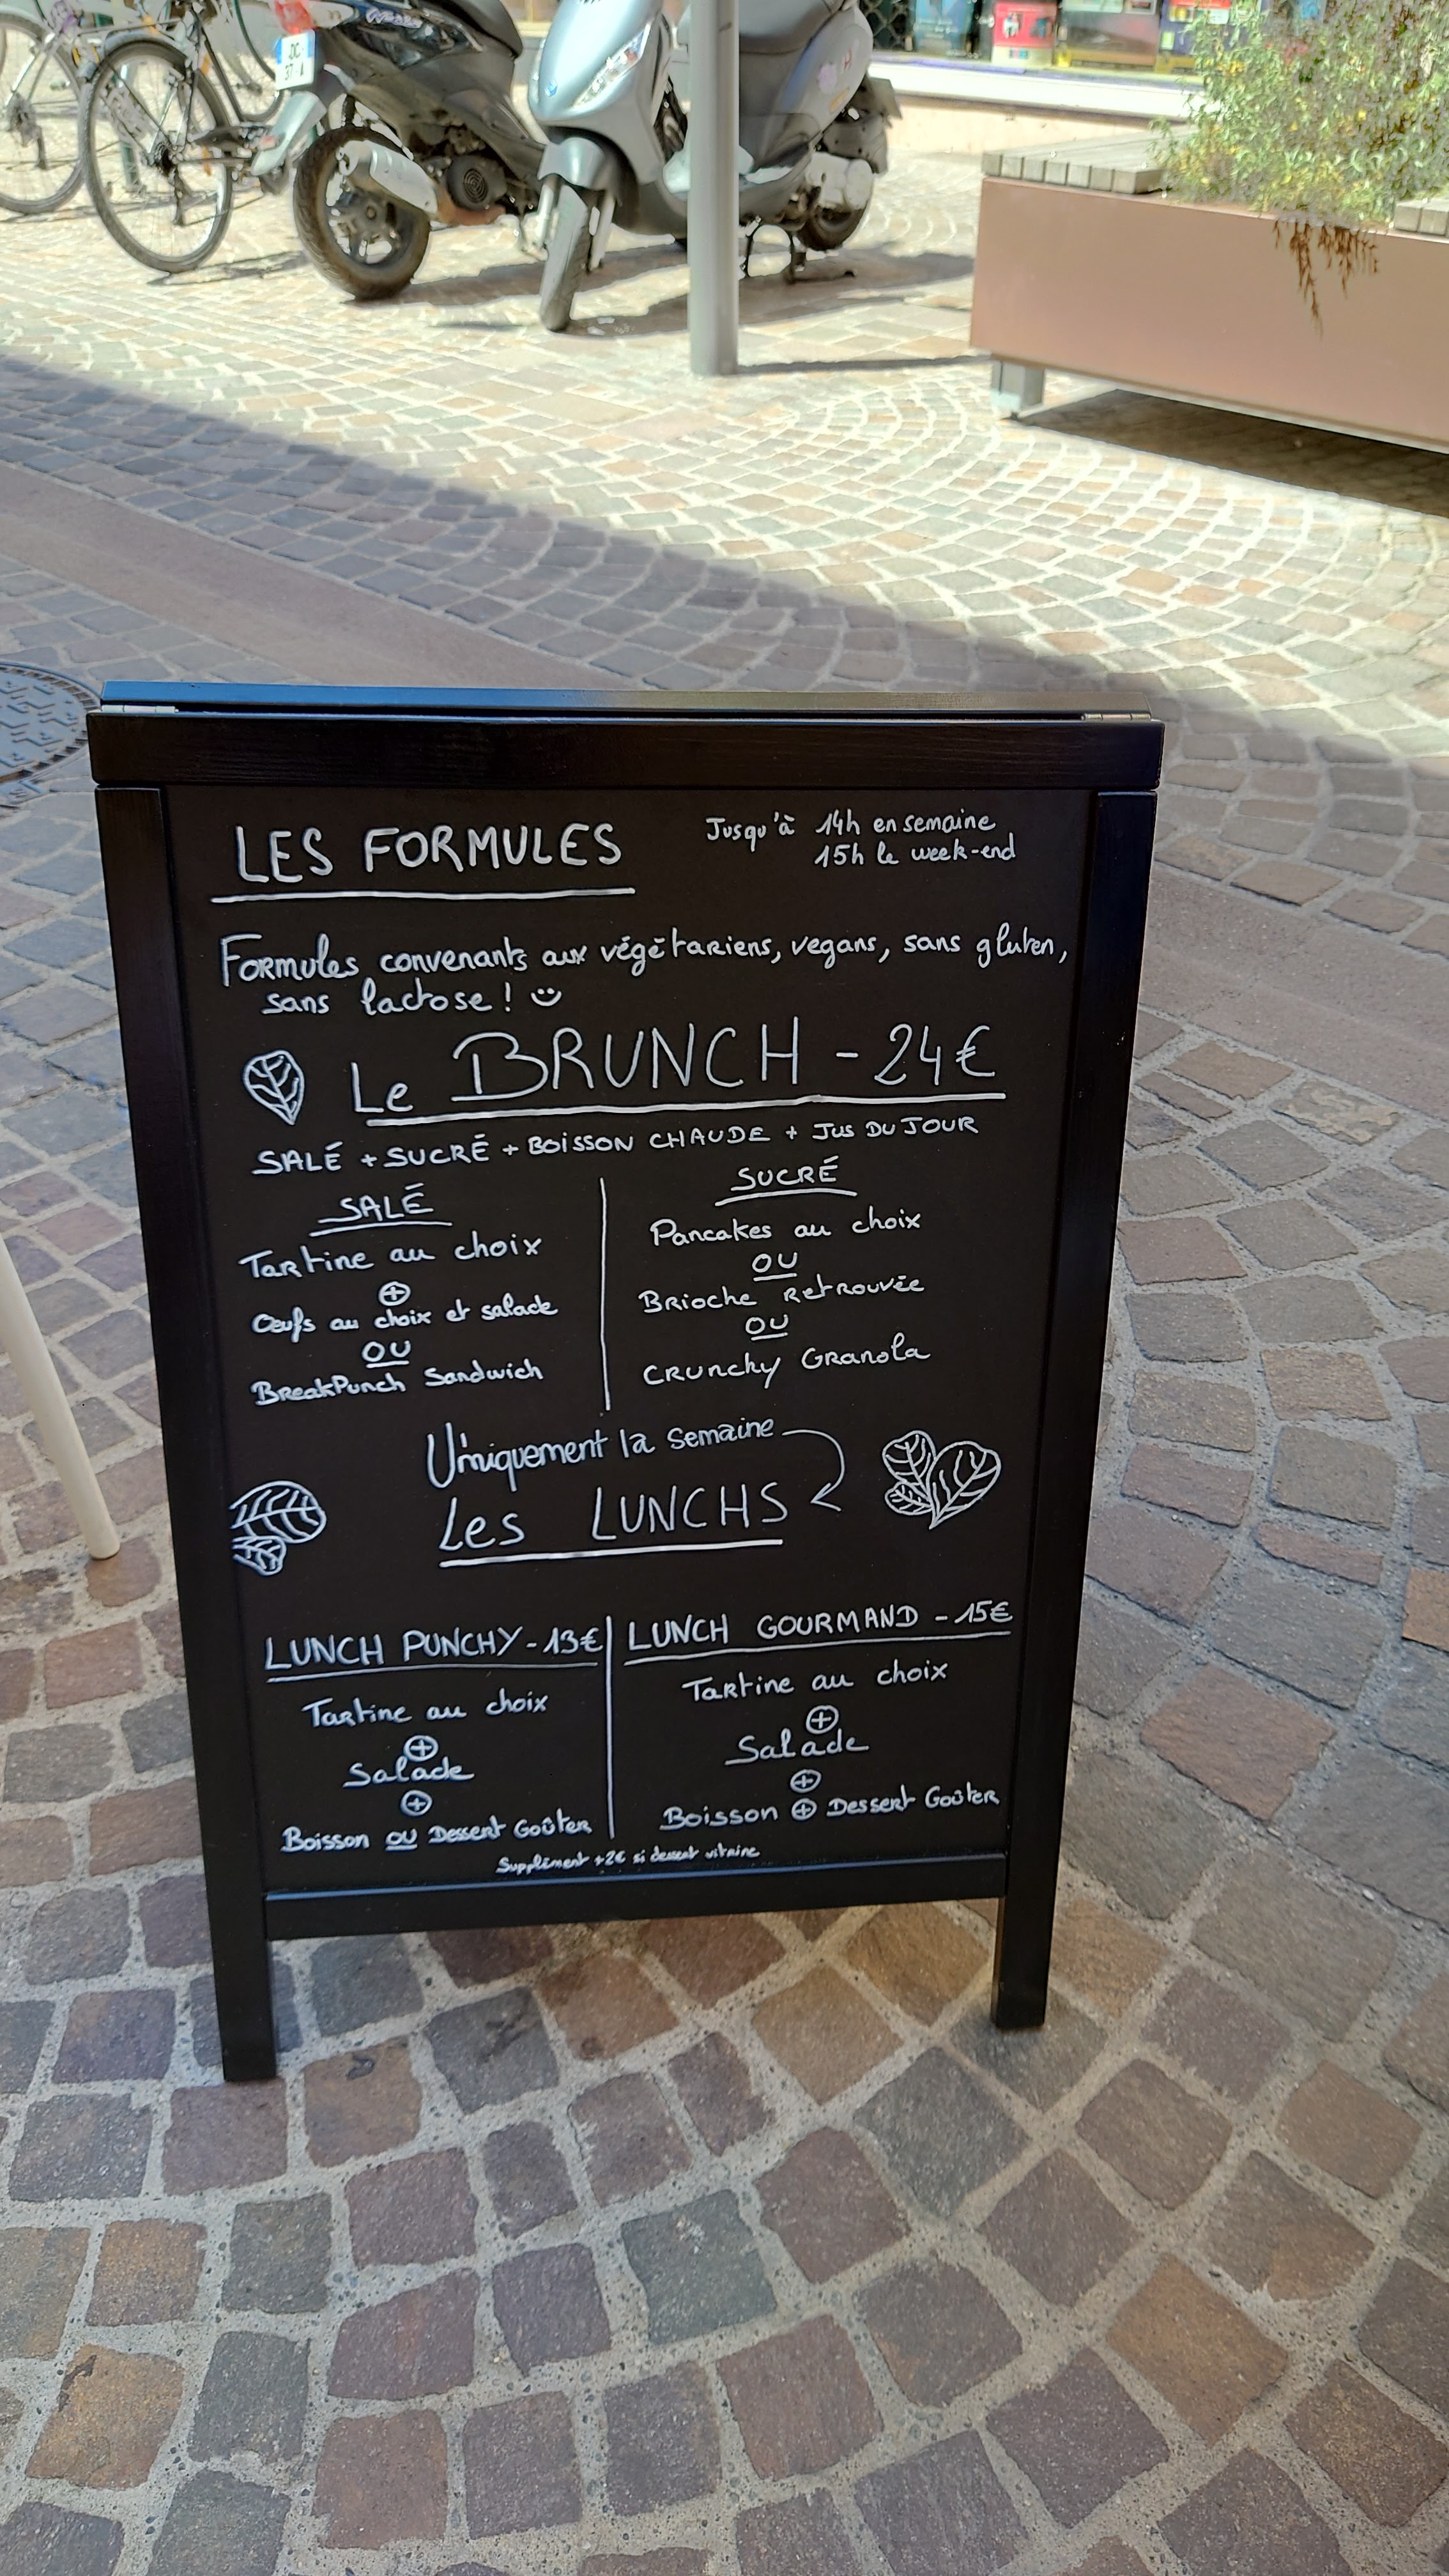 LES FORMULES
Jusqu'à 14h en semaine
15h le week-end
Formules convenants aux végétariens, vegans, sans gluten,
sans lactose ! :)
Le BRUNCH - 24€
SALÉ + SUCRÉ + BOISSON CHAUDE + JUS DU JOUR
SALÉ
Tartine au choix
+
Œufs au choix et salade
OU
BreakPunch Sandwich
SUCRÉ
Pancakes au choix
OU
Brioche Retrouvée
OU
Crunchy Granola
Uniquement la semaine
Les LUNCHS
LUNCH PUNCHY - 13€
Tartine au choix
+
Salade
+
Boisson OU Dessert Goûter
LUNCH GOURMAND - 15€
Tartine au choix
+
Salade
+
Boisson + Dessert Goûter
Supplément +2€ si dessert vitrine